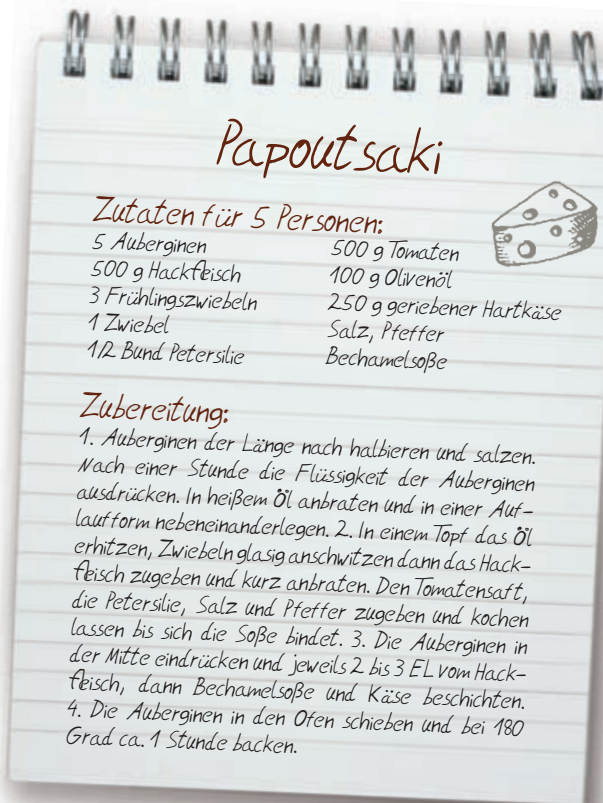 Papoutsaki
Zutaten für 5 Personen:
5 Auberginen
500 g Hackfleisch
3 Frühlingszwiebeln
1 Zwiebel
1/2 Bund Petersilie
500 g Tomaten
100 g Olivenöl
250 g geriebener Hartkäse
Salz, Pfeffer
Bechamelsoße
Zubereitung:
1. Auberginen der Länge nach halbieren und salzen.
Nach einer Stunde die Flüssigkeit der Auberginen
ausdrücken. In heißem Öl anbraten und in einer Auf-
laufform nebeneinanderlegen. 2. In einem Topf das Öl
erhitzen, Zwiebeln glasig anschwitzen dann das Hack-
fleisch zugeben und kurz anbraten. Den Tomatensaft,
die Petersilie, Salz und Pfeffer zugeben und kochen
lassen bis sich die Soße bindet. 3. Die Auberginen in
der Mitte eindrücken und jeweils 2 bis 3 EL vom Hack-
fleisch, dann Bechamelsoße und Käse beschichten.
4. Die Auberginen in den Ofen schieben und bei 180
Grad ca. 1 Stunde backen.